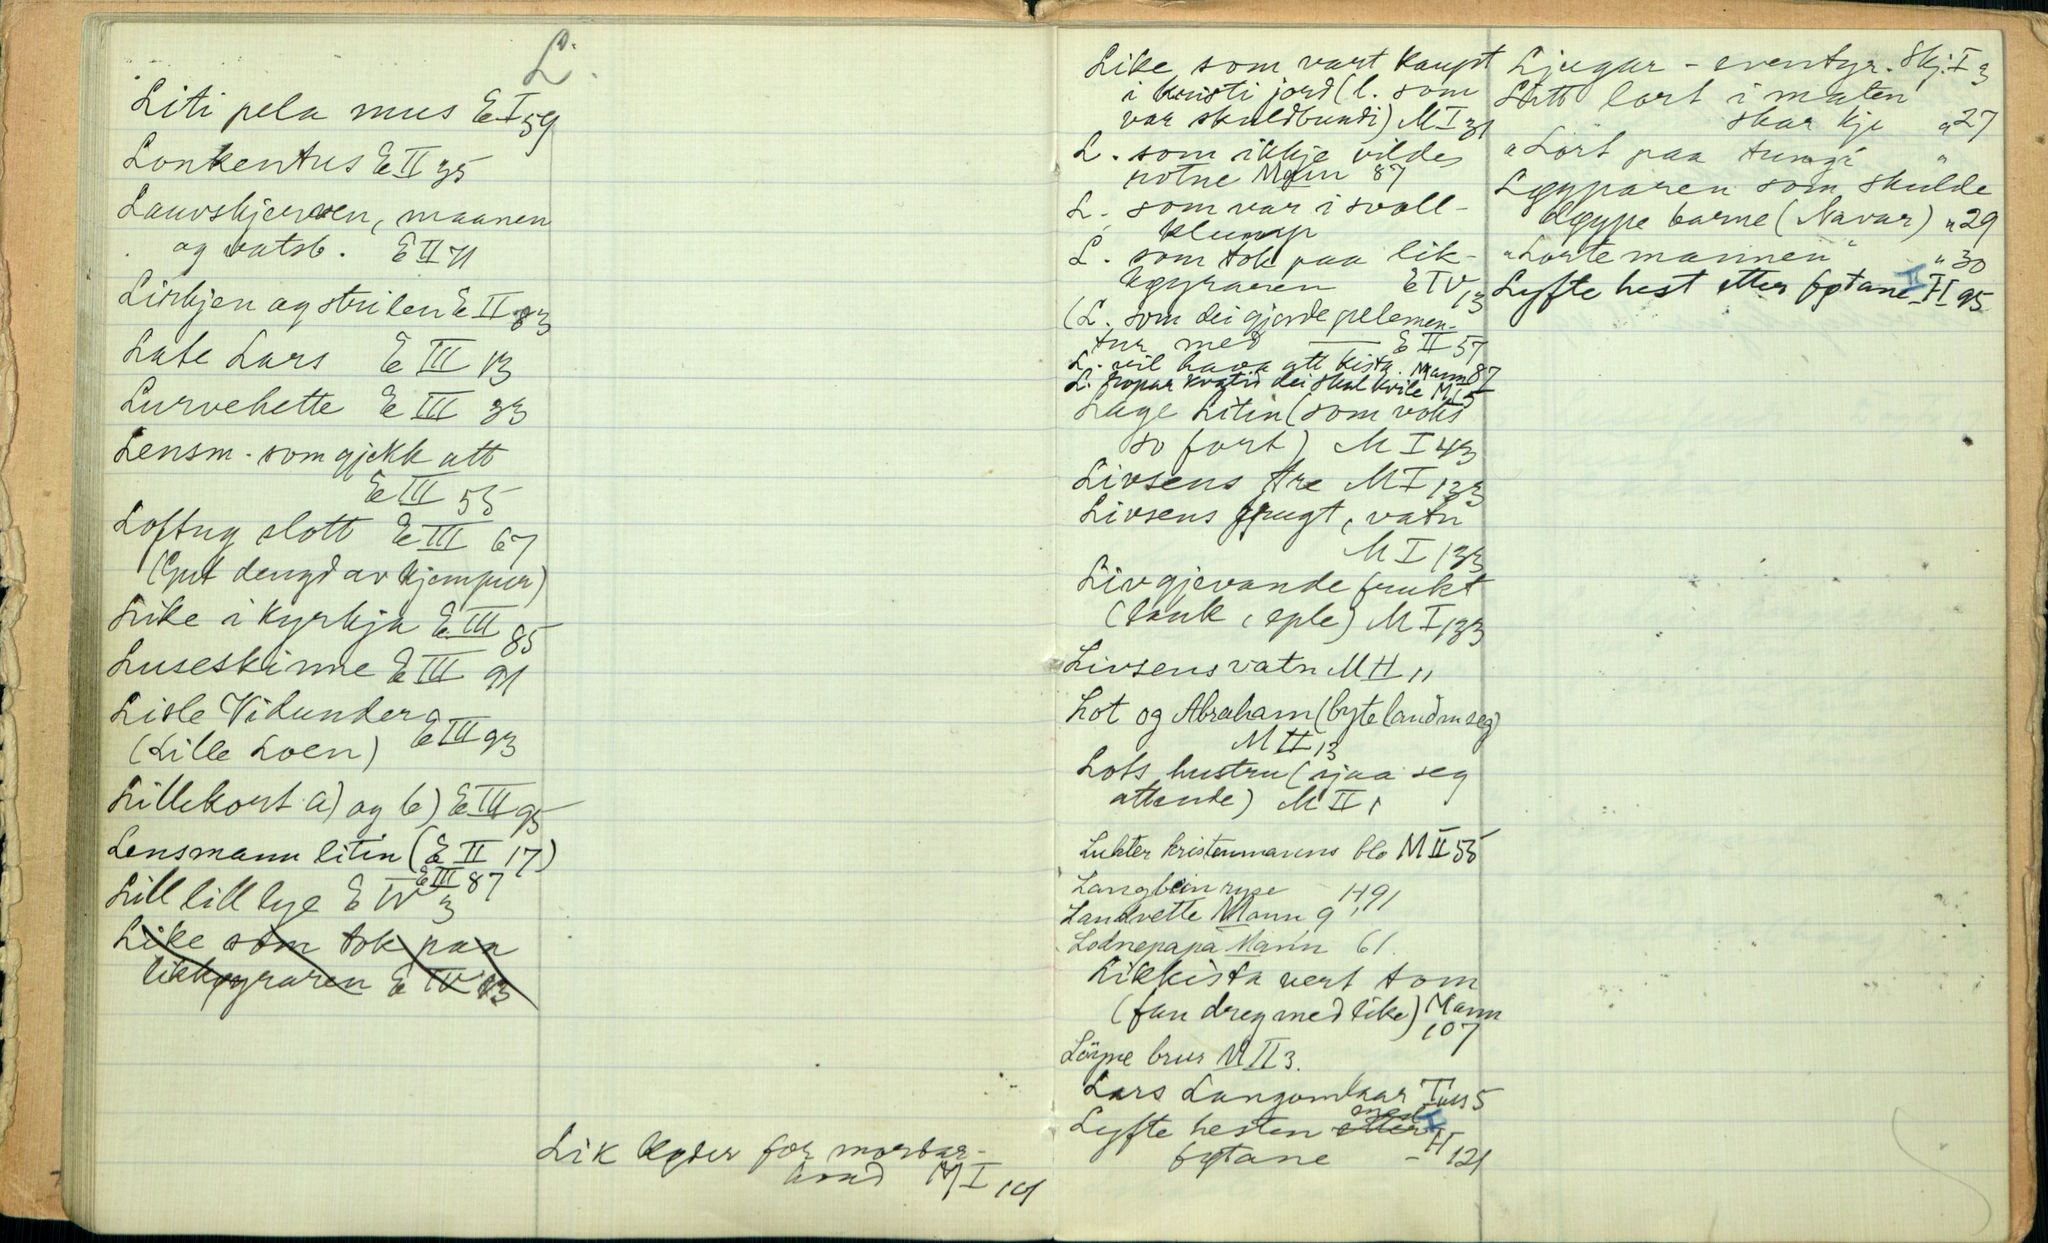 L.
Liti pela mus E I 59
Lonkentus E II 35
Lauvskjerven, maanen
og vatsb. E II 71
Liskjen og strilen E II 83
Late Lars E III 13
Lurvehette E III 33
Lensm. som gjekk att
E III 55
Loftug slott E III 67
(Gut dengd av kjempur)
Like i kyrkja E III 85
Luseskinne E III 91
Lisle Vidunder
(Lille Loen) E III 93
Lillekort a) og b) E III 95
Lensmann litin (E II 17)
E III 87
Lill lill lye E IV 3
Like som tok paa
likkøyraren E IV 13
Lik bløder for morbar-
M I 101
Like som vart kaupt
i kristi jord (l. som
var skuldbundi) M I 31
L. som ikkje vilde
rotne Mann 87
L. som var i svoll-
klump
L. som tok paa lik-
køyraren E IV 13
(L. som dei gjorde pelemen-
tur med — E II 57
L. vil hava att kista. Mann 87
L. ropar kvatid dei skal kvile M I 5
Lage Litin (som voks
so fort) M I 43
Livsens tre M I 133
Livsens frugt, vatn
M I 133
Livgjevande frukt
(lauk, eple) M I 133
Livsens vatn M II 11
Lot og Abraham (byte land m seg)
M II 13
Lots hustru (sjaa seg
attende) M II 1
Lukter kristenmanns blo M II 55
Langbein ryse H 91
Landvette Mann 9,
Lodnepapa Mann 61.
Likkista vert tom
(fan dreg med like) Mann
107
Löype brur M II 3.
Lars Langomlaar Tuss 5
Lyfte hesten etter med I
føtane – H 121
Ljugar - eventyr. Skj. I 3
Litt lort i maten
skar kje " 27
" Lort paa tungi "
Løyparen som skulde
løype barme (Navar) " 29
"Lortemannen" " 30
Lyfte hest etter føtane II H 95